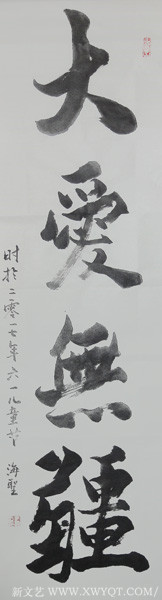 大愛無疆
时於二零一七年六一儿童节
海聖
新文艺 WWW.XWYQT.COM